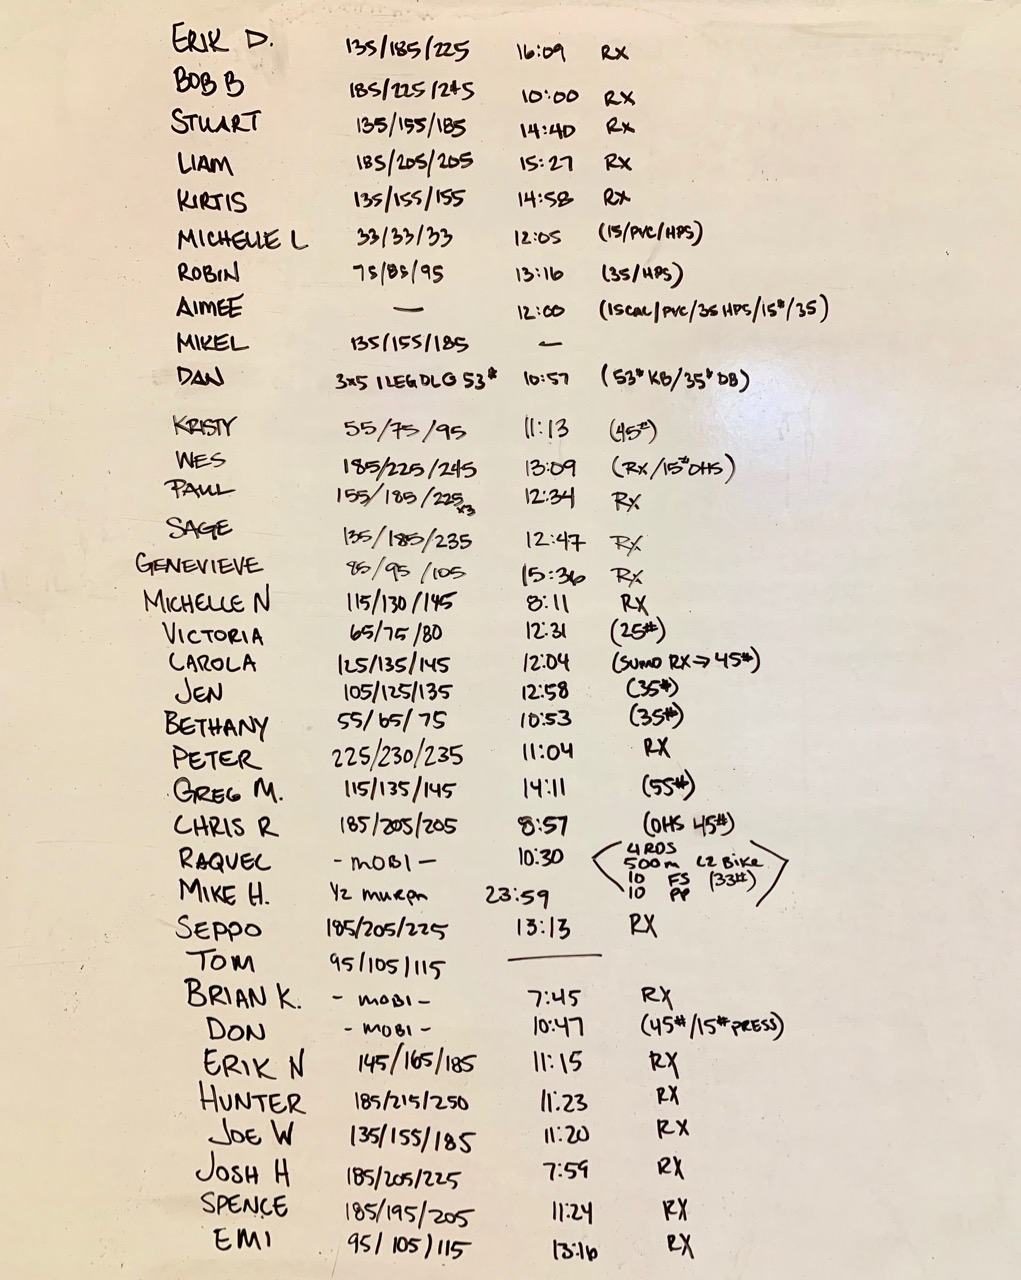 ERIK D. 135/185/225 16:09 RX
BOB B 185/225/245 10:00 RX
STUART 135/155/185 14:40 RX
LIAM 185/205/205 15:27 RX
KIRTIS 135/155/155 14:58 RX
MICHELLE L 33/33/33 12:05 (15/PVC/HPS)
ROBIN 75/85/95 13:16 (35/HPS)
AIMEE — 12:00 (15CAL/PVC/35 HPS/15#/35)
MIKEL 135/155/185 —
DAN 3x5 1 LEG DLO 53# 10:57 (53# KB/35# DB)
KRISTY 55/75/95 11:13 (45#)
WES 185/225/245 13:09 (RX/15# OHS)
PAUL 155/185/225 x3 12:34 RX
SAGE 135/185/235 12:47 RX
GENEVIEVE 85/95/105 15:36 RX
MICHELLE N 115/130/145 8:11 RX
VICTORIA 65/75/80 12:31 (25#)
CAROLA 125/135/145 12:04 (SUMO RX → 45#)
JEN 105/125/135 12:58 (35#)
BETHANY 55/65/75 10:53 (35#)
PETER 225/230/235 11:04 RX
GREG M. 115/135/145 14:11 (55#)
CHRIS R 185/205/205 8:57 (OHS 45#)
RAQUEL - MOBI - 10:30
4 RDS
500m C2 BIKE
10 FS (33#)
10 PP
MIKE H. 1/2 MURPH 23:59
SEPPO 185/205/225 13:13 RX
TOM 95/105/115 —
BRIAN K. - MOBI - 7:45 RX
DON - MOBI - 10:47 (45#/15# PRESS)
ERIK N 145/165/185 11:15 RX
HUNTER 185/215/250 11:23 RX
JOE W 135/155/185 11:20 RX
JOSH H 185/205/225 7:59 RX
SPENCE 185/195/205 11:24 RX
EMI 95/105/115 13:16 RX